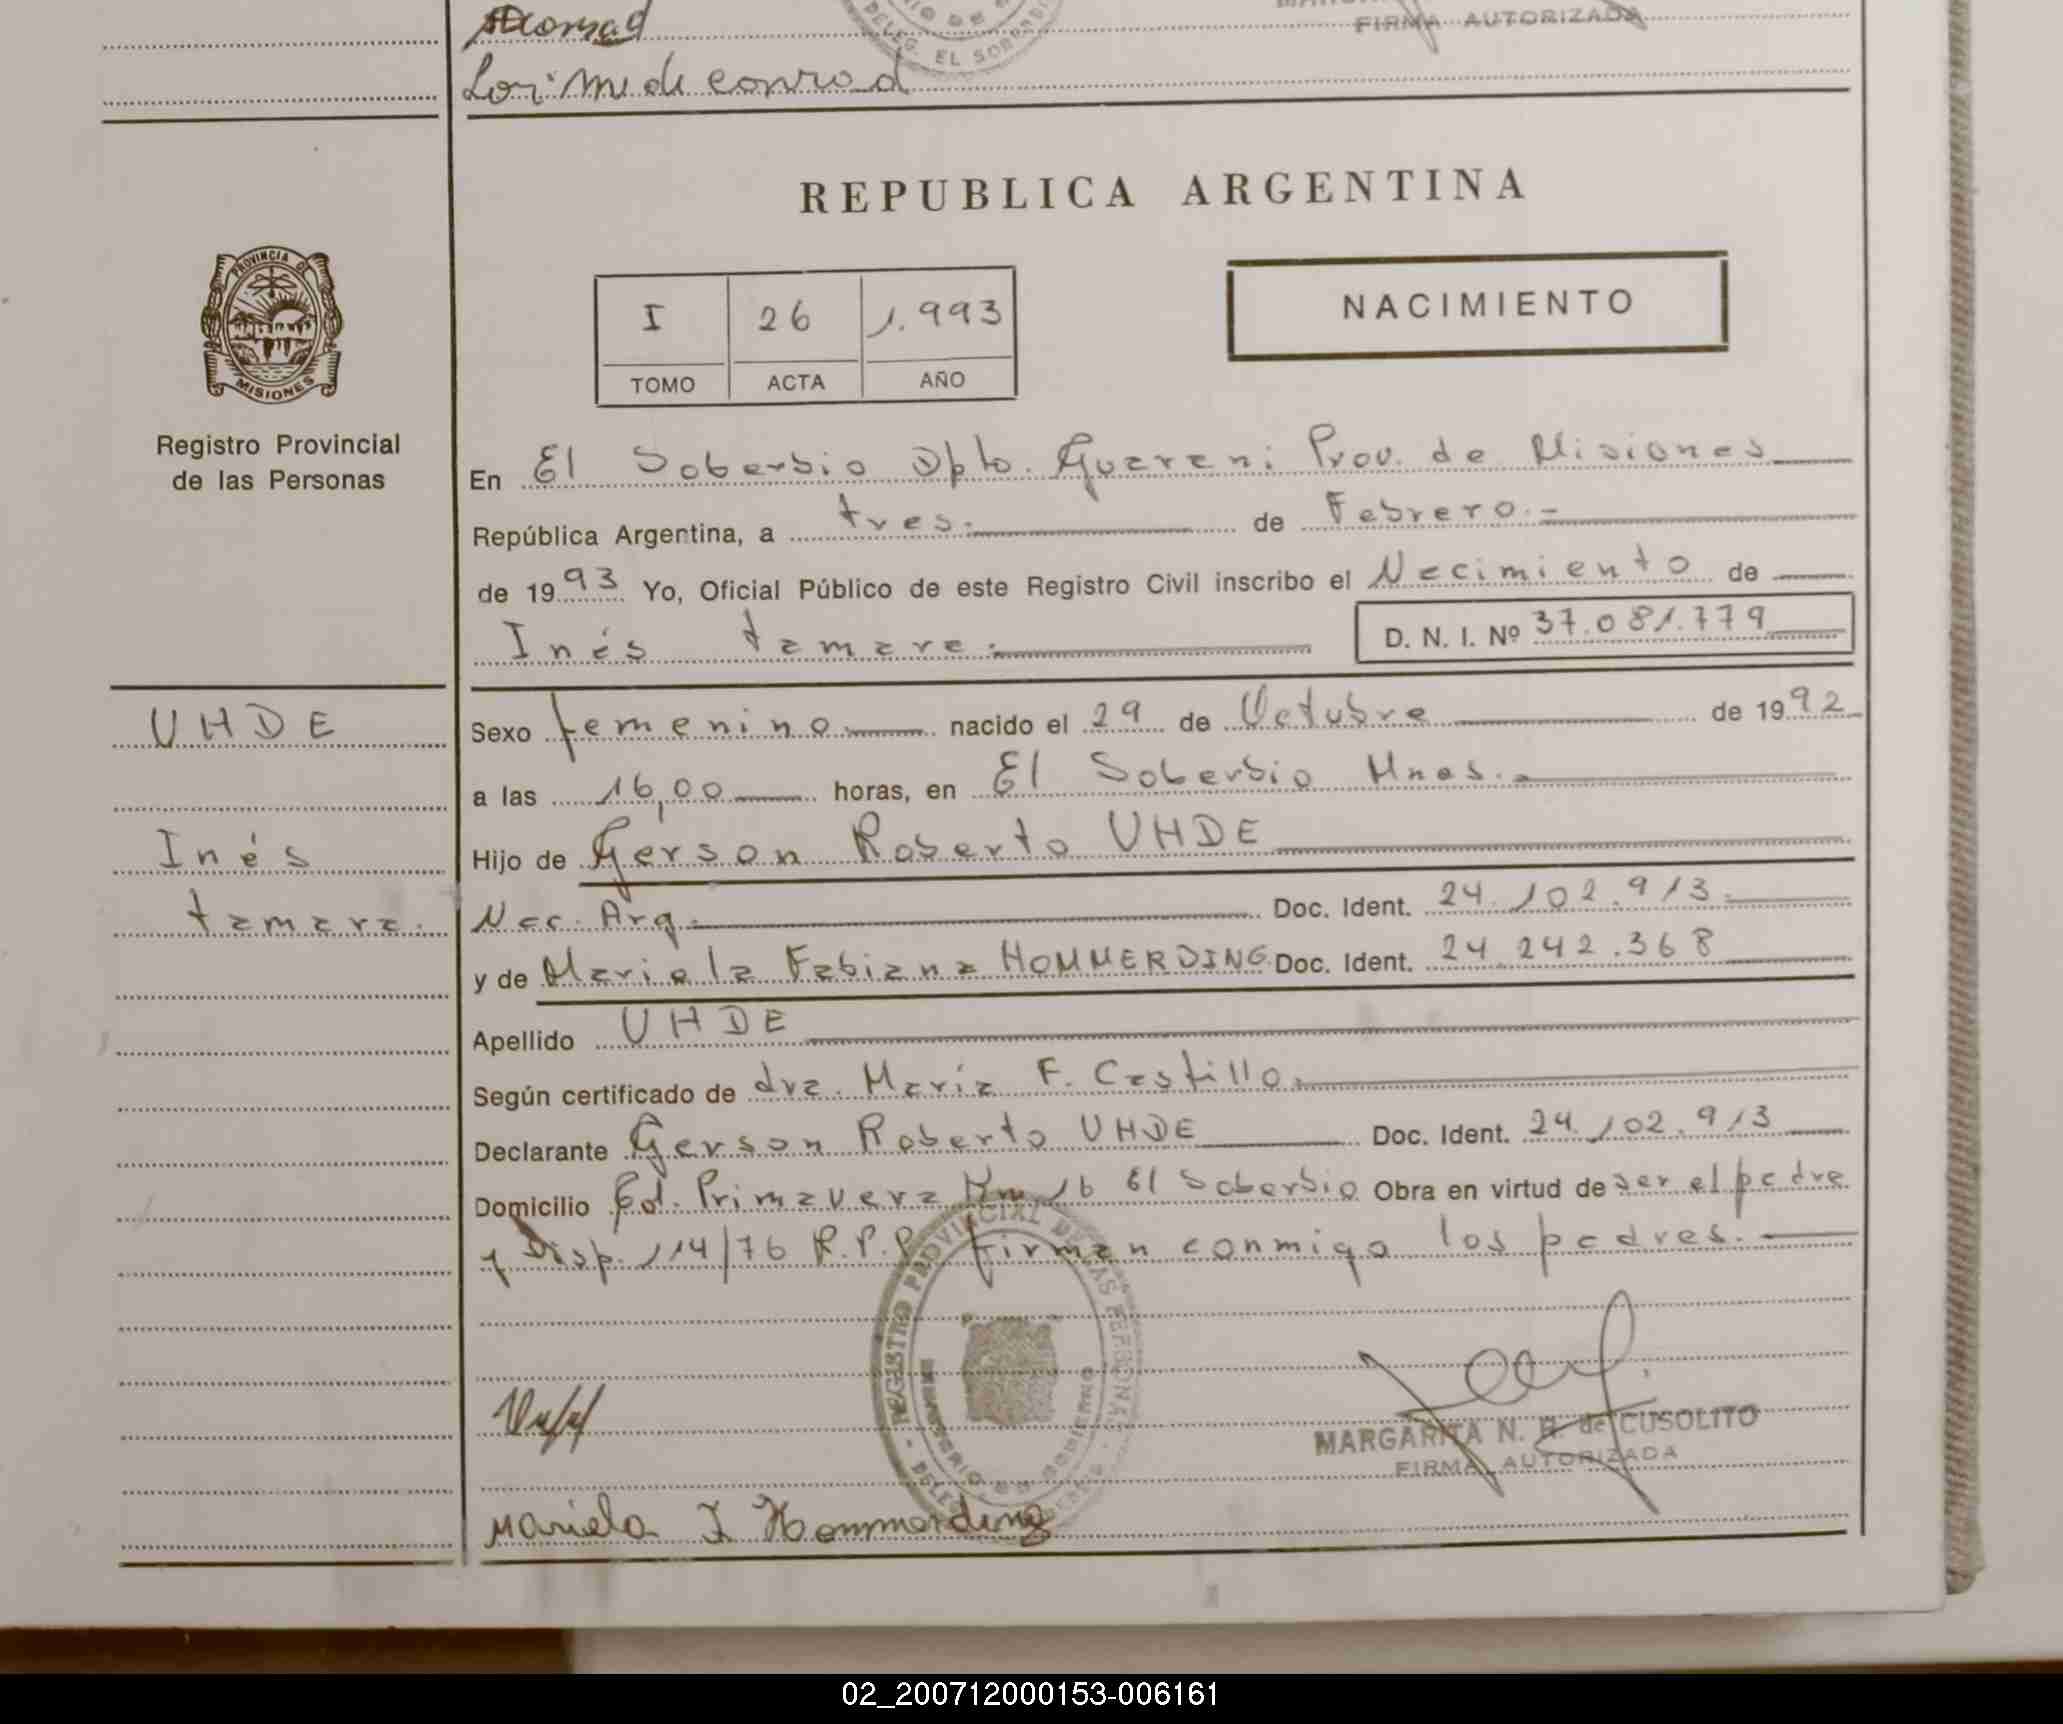 Lori M de Conrad
DELEG. EL SOBERBIO
FIRMA AUTORIZADA
REPUBLICA ARGENTINA
PROVINCIA DE
MISIONES
Registro Provincial
de las Personas
I 26 1.993
TOMO ACTA AÑO
NACIMIENTO
En El Soberbio Dpto. Guarani Prov. de Misiones
República Argentina, a tres.- de Febrero.-
de 1993 Yo, Oficial Público de este Registro Civil inscribo el Nacimiento de
Inés tamara.
D. N. I. Nº 37.081.779
UHDE
Inés
tamara.
Sexo femenino nacido el 29 de Octubre de 1992
a las 16,00 horas, en El Soberbio Mnes.-
Hijo de Gerson Roberto UHDE
Nac. Arg.- Doc. Ident. 24.102.913.
y de Mariela Fabiana HOMMERDING Doc. Ident. 24.242.368
Apellido UHDE
Según certificado de dra. María F. Castillo.
Declarante Gerson Roberto UHDE Doc. Ident. 24.102.913
Domicilio Col. Primavera Km 16 El Soberbio Obra en virtud de ser el padre
y Disp. 114/76 R.P.P. firman conmigo los padres.-
REGISTRO PROVINCIAL DE LAS PERSONAS
MINISTERIO DE GOBIERNO
MARGARITA N. R. de CUSOLITO
FIRMA AUTORIZADA
Mariela F Hommerding
02_200712000153-006161